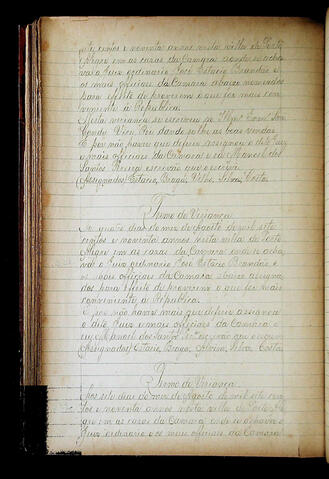 te centos e noventa annos nesta villa de Porto
Alegre em as cazas da Camara aonde se acha
va o Juiz ordinario José Estacio Brandão e
os mais officiaes da Camara abaixo nomeados
para effeito de proverem o que for mais con
veniente à Republica.
Nesta vereança se escreveu ao Illmo. Exmo. Snr.
Conde Vice Rei dando-se lhe as boas vindas.
E por não haver que deferir assignou o dito Juiz
e mais officiaes da Camara e eu Manoel dos
Santos escrivão que o escrevi.
(Assignados) Estacio, Braga, Silva, Costa.
Termo de Vereança
Aos quatro dias do mez de Agosto de mil sete
centos e noventa annos nesta villa de Porto
Alegre em as cazas da Camara onde se acha
va o Juiz ordinario José Estacio Brandão e
os mais officiaes da Camara abaixo assigna
dos para effeito de proverem o que for mais
conveniente à Republica.
E por não haver mais que deferir assignou
o dito Juiz e mais officiaes da Camara e
eu Manoel dos Santos escrivão que o escrevi
(Assignados) Estacio, Braga, Silva, Costa.
Termo de Vereança
Aos sete dias do mez de Agosto de mil sete cen
tos e noventa annos nesta villa de Porto Ale
gre em as cazas da Camara onde se achava o
Juiz ordinario e os mais officiaes da Camara